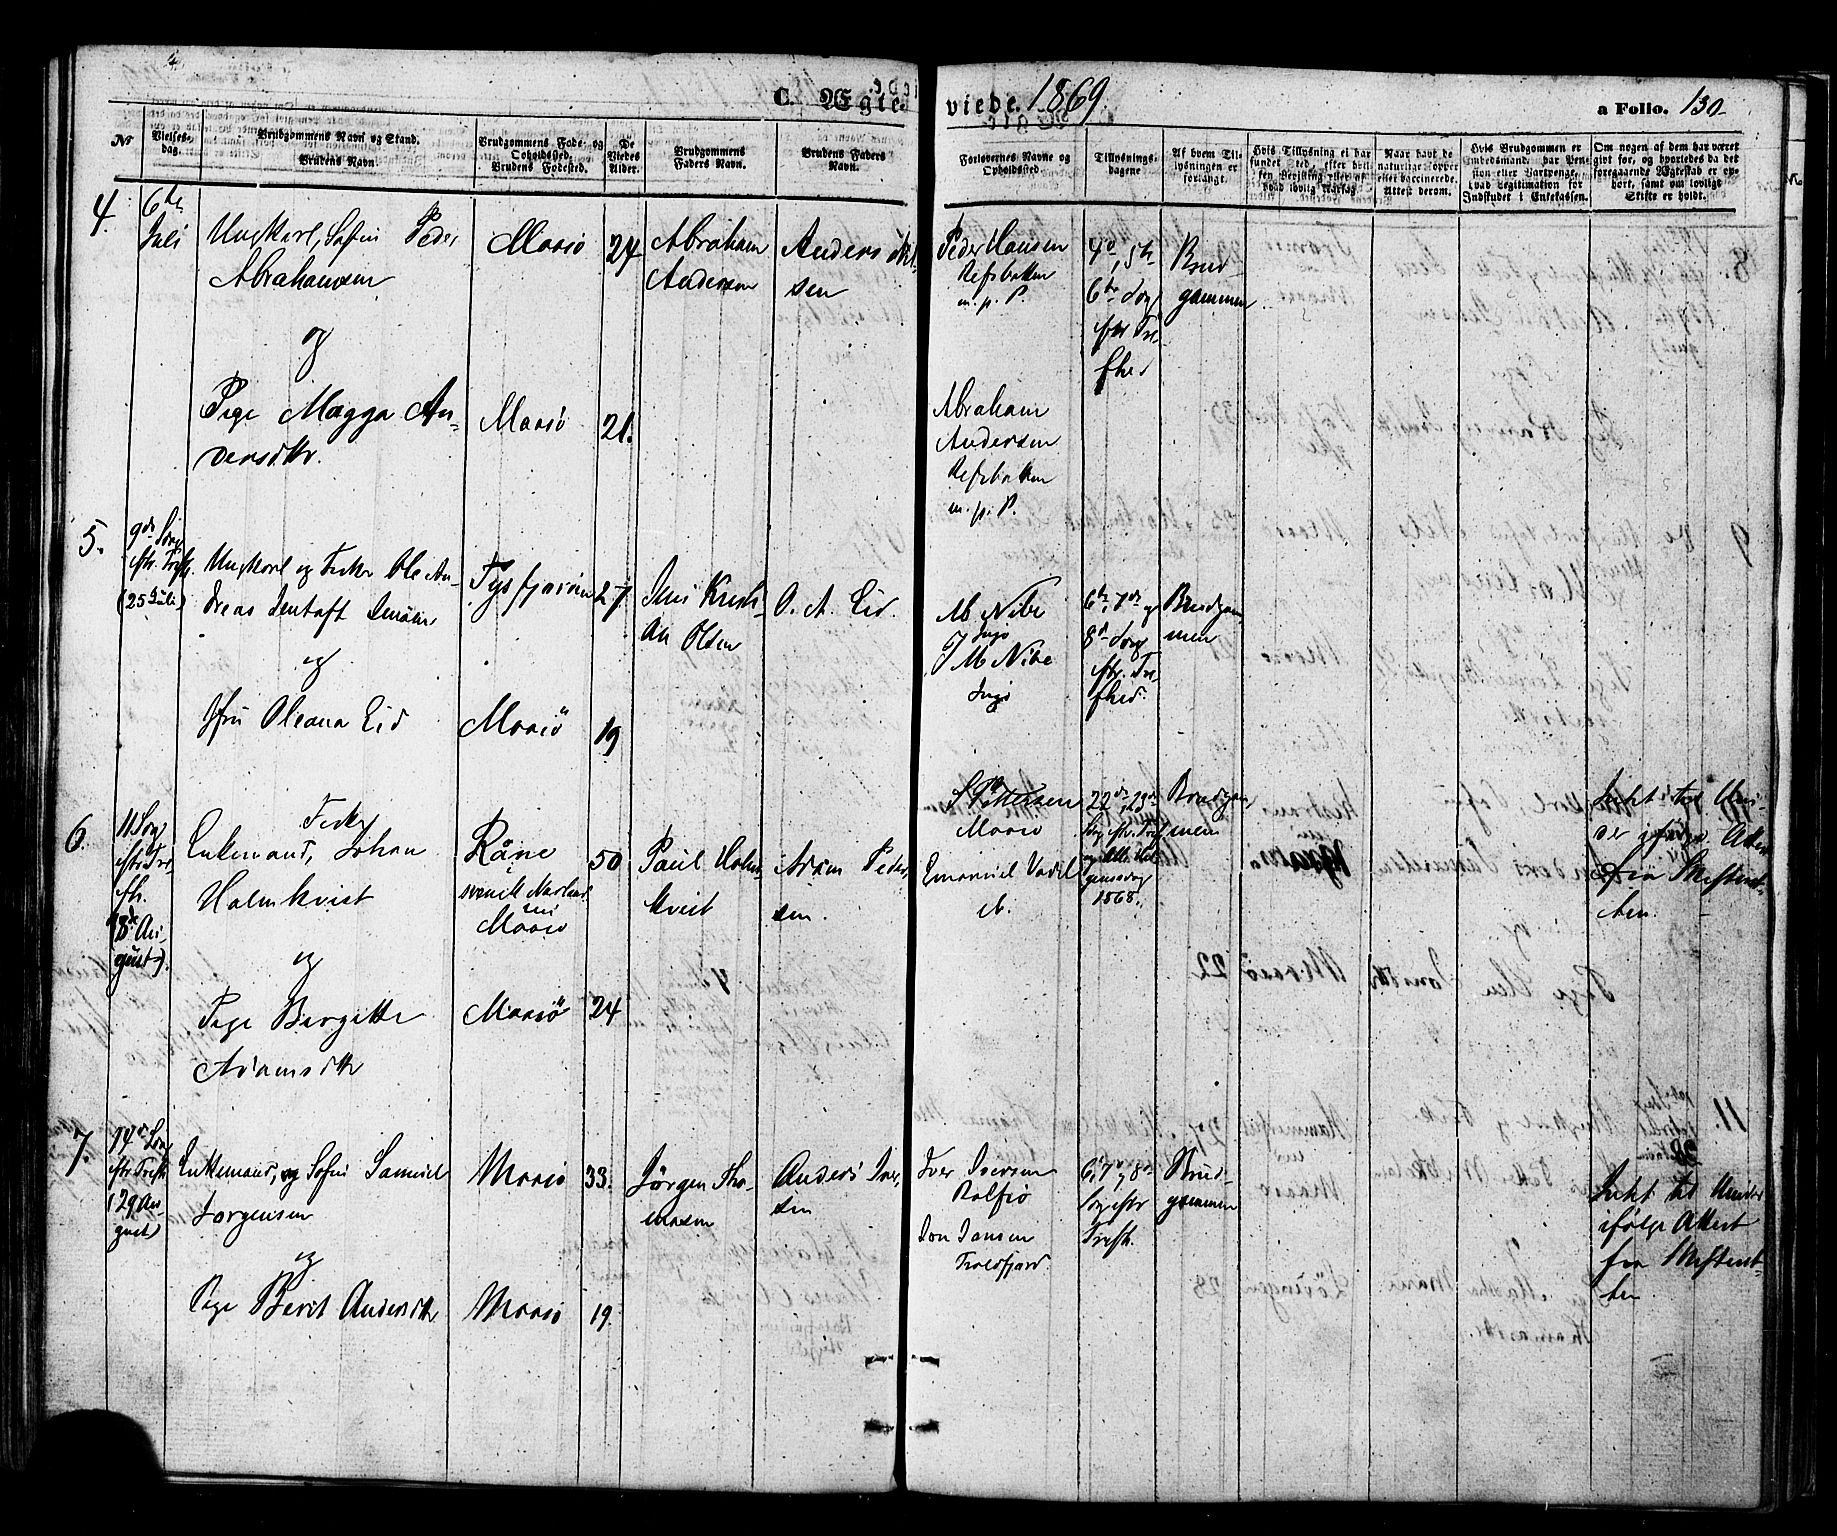 C. Ægteviede. 1869.
a Folio. 130
Nr
Vielses-
dag.
Brudgommens Navn og Stand.
Brudens Navn.
Brudgommens Fade- og
Opholdssted.
Brudens Fødested.
De
Viedes
Alder.
Brudgommens
Faders Navn.
Brudens Faders
Navn.
Forlovernes Navne og
Opholdssted.
Tillysnings-
dagene
Af hvem Til-
lysningen er
forlangt.
Hvis Tillysning ei har
fundet Sted, efter hvil-
ken Bevilling eller af
hvad lovlig Aarsag
Naar havt de
naturlige Kopper
eller vaccinerede.
Attest derom.
Hvis Brudgommen er
Embedsmand, har Pen-
sion eller Vartpenge,
hvad Legitimation for
Indskudet i Enkekassen.
Om nogen af dem har været
givt før, og hvorledes da det
foregaaende Ægteskab er op-
hørt, samt om lovligt
Skifte er holdt.
4.
6te
Juli
Ungkarl, Søfin Peder
Abrahamsen
og
Pige Magga An-
dersdtr.
Maasö
Maasö
24
21.
Abraham
Andersen
Anders
sen
Peder Hansen
Refsbotten
m. p. P.
Abraham
Andersen
Refsbotten
m. p. P.
4d, 5te
6te Søng
efter Tre-
fhed
Brud-
gommen
5.
9de Søng
eftr. Trefh.
(25 Juli)
Ungkarl og Fisker Ole An-
dreas Jentoft
og
Jfru Oleana Eid
Tysfjorden
Maasö
27
19
Jens Kristi-
an Olsen
O. A. Eid.
M Nibe
Ingö
J M Nibe
Ingö
6te, 7de og
8de Søng
eftr. Tre-
fhed.
Brudgom-
men
6.
11 Søng
eftr Tre-
fh.
(8de Au-
gust).
Fisker
Enkemand, Johan
Holmkvist
og
Pige Bergitte
Adamsdtr
Råne
svensk Norland
Maasö
Maasö
50
24
Paul Holm-
kvist
Adam Peder-
sen.
Pettersen
Maasö
Emanuel
22de, 23de
Søng eftr. Tref
og Alle Hel-
gensdag
1868.
Brudgom-
men
Intet til Hin-
der ifølge Attest
fra Skifteret-
ten.
7.
14de Søng
eftr Trefh
(29 Au-
gust)
Enkemand, og Søfin Samuel
Jørgensen
og
Pige Berit Andersdtr
Maasö
Maasö
33.
19.
Jörgen Tho-
masen
Anders Iver-
sen
Iver Iversen
Rolfsö
Jon Jansen
Troldfjord.
6, 7 og 8de
Søng eftr
Trefh.
Brud-
gommen
Intet til Hinder
ifølge Attest
fra Skifteret-
ten